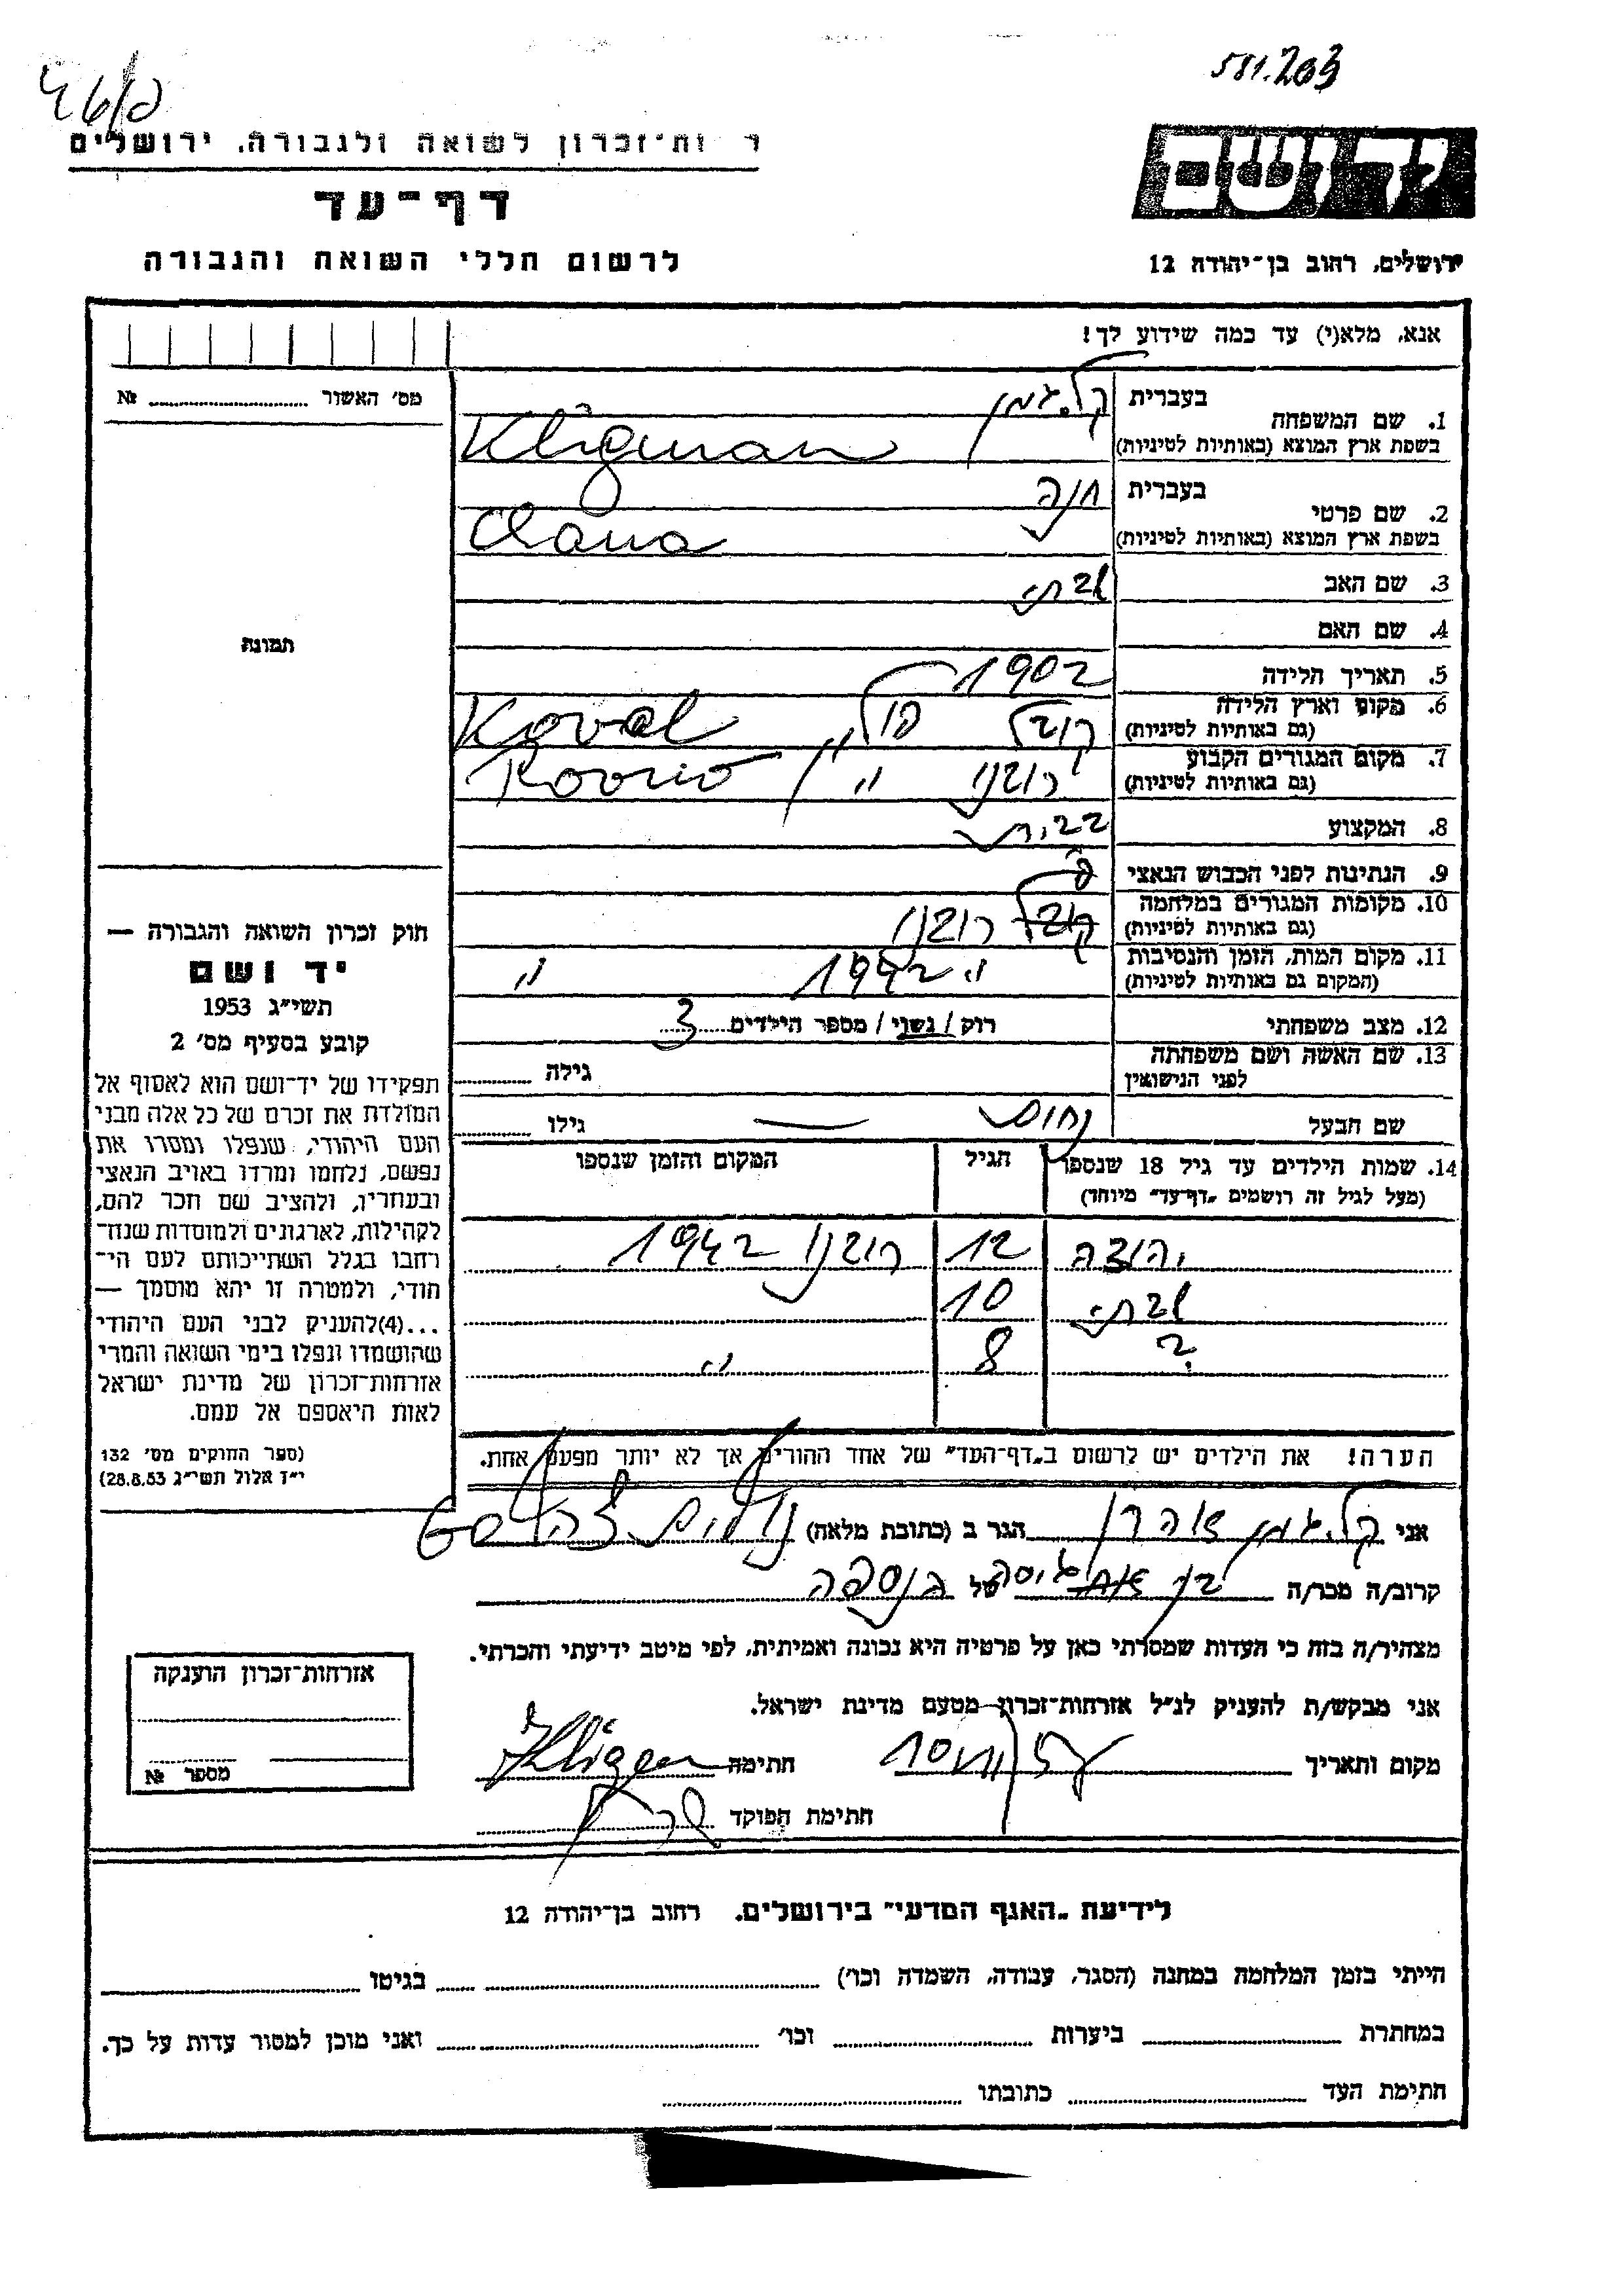 581.203
ר ות־זכרון לשואה ולגבורה, ירושלים
דף־עד
לרשום חללי השואה והגבורה
יד ושם
ירושלים, רחוב בן־יהודה 12
אנא, מלא(י) עד כמה שידוע לך!
מס׳ האשור № 
1. שם המשפחה בעברית קליגמן
בשפת ארץ המוצא (באותיות לטיניות) Kligman
2. שם פרטי בעברית חנה
בשפת ארץ המוצא (באותיות לטיניות) Chana
3. שם האב שבתי
4. שם האם
תמונה
5. תאריך הלידה 1902
6. מקום וארץ הלידה (גם באותיות לטיניות) קובל פולין Koval
7. מקום המגורים הקבוע (גם באותיות לטיניות) רובנו " Rovno
8. המקצוע
9. הנתינות לפני הכבוש הנאצי פ'
10. מקומות המגורים במלחמה (גם באותיות לטיניות) קובל רובנו
11. מקום המות, הזמן והנסיבות (המקום גם באותיות לטיניות) " 1942 "
12. מצב משפחתי רוק / נשוי / מספר הילדים 3
13. שם האשה ושם משפחתה לפני הנישואין גילה
שם הבעל נחום — גילו
14. שמות הילדים עד גיל 18 שנספו הגיל המקום והזמן שנספו
(מעל לגיל זה רושמים „דף־עד״ מיוחד)
יהודה 12 רובנו 1942
שבתי 10
? 8 "
הערה! את הילדים יש לרשום ב„דף־העד״ של אחד ההורים אך לא יותר מפעם אחת.
חוק זכרון השואה והגבורה —
יד ושם
תשי״ג 1953
קובע בסעיף מס׳ 2
תפקידו של יד־ושם הוא לאסוף אל
המולדת את זכרם של כל אלה מבני
העם היהודי, שנפלו ומסרו את
נפשם, נלחמו ומרדו באויב הנאצי
ובעוזריו, ולהציב שם וזכר להם,
לקהילות, לארגונים ולמוסדות שנח־
רבו בגלל השתייכותם לעם הי־
הודי, ולמטרה זו יהא מוסמך —
...(4)להעניק לבני העם היהודי
שהושמדו ונפלו בימי השואה והמרי
אזרחות־זכרון של מדינת ישראל
לאות היאספם אל עמם.
(ספר החוקים מס׳ 132
י״ז אלול תשי״ג 28.8.53)
אני קליגמן אהרן הגר ב (כתובת מלאה)
קרוב/ה מכר/ה בן גיסה של הנספה
מצהיר/ה בזה כי העדות שמסרתי כאן על פרטיה היא נכונה ואמיתית, לפי מיטב ידיעתי והכרתי.
אני מבקש/ת להעניק לנ״ל אזרחות־זכרון מטעם מדינת ישראל.
מקום ותאריך חתימה
חתימת הפוקד
אזרחות־זכרון הוענקה
מספר №
לידיעת „האגף המדעי״ בירושלים, רחוב בן־יהודה 12
הייתי בזמן המלחמה במחנה (הסגר, עבודה, השמדה וכו׳) בגיטו
במחתרת ביערות וכו׳ ואני מוכן למסור עדות על כך.
חתימת העד כתובתו